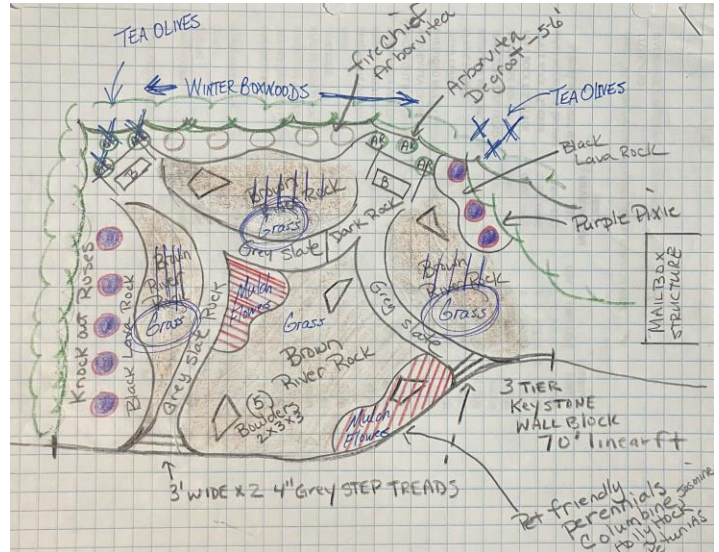 TEA OLIVES
WINTER BOXWOODS
fire Chief
Arborvitea
Arborvitea
Degroot - 5-6'
TEA OLIVES
Black
Lava Rock
Purple Pixie
MAILBOX
STRUCTURE
AR
AR
AR
B
B
Brown
Rock
Grass
Grey Slate
Dark Rock
Knock out Roses
Black Lava Rock
Brown
River
Grass
Grey Slate Rock
Mulch
Flowers
Grass
Brown
River Rock
Grey Slate
Brown
River Rock
Grass
5
Boulders
2x3x3
Mulch
Flowers
3 TIER
KEYSTONE
WALL BLOCK
70' linear ft
3' WIDE x 2 4" Grey STEP TREADS
Pet friendly
perennials
Columbine Jasmine
Holly Hock